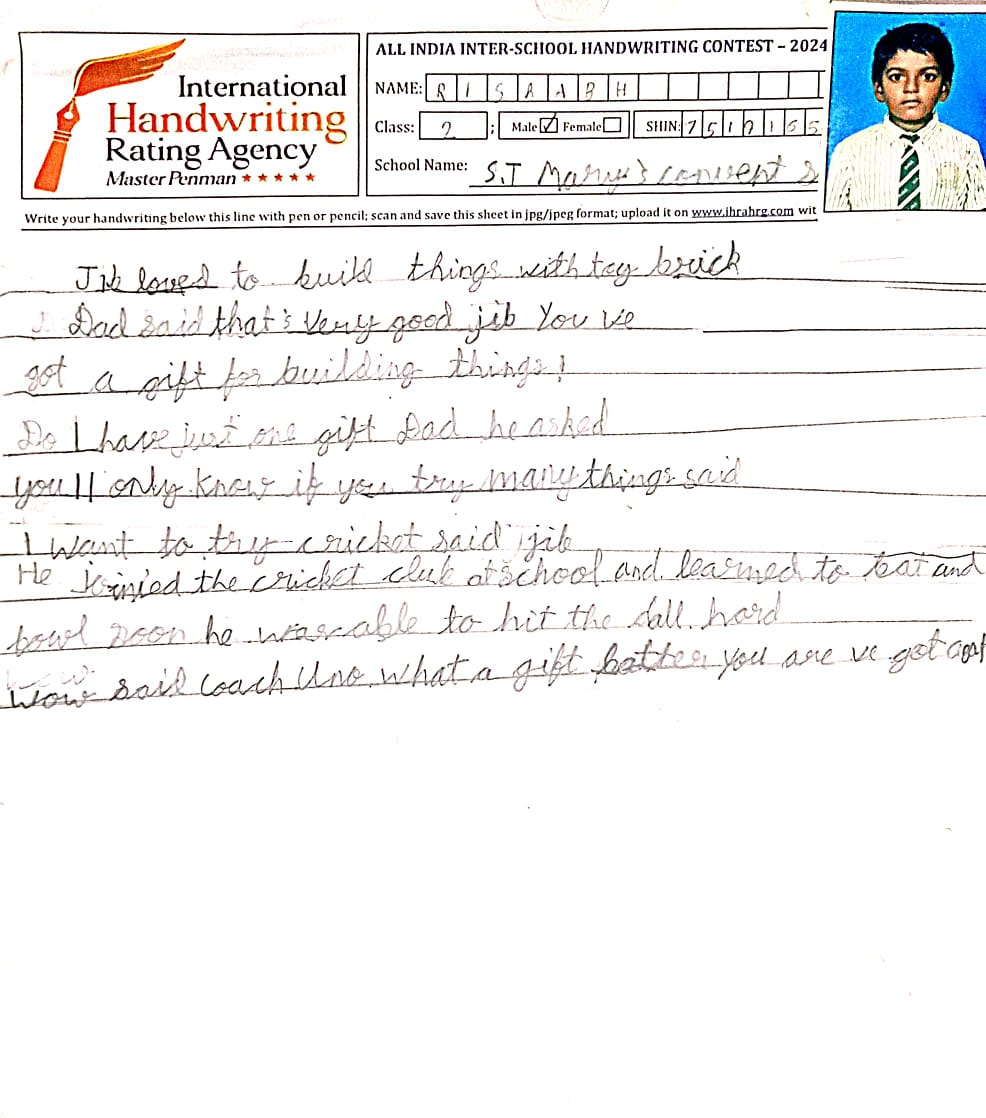 International
Handwriting
Rating Agency
Master Penman ★★★★★
ALL INDIA INTER-SCHOOL HANDWRITING CONTEST – 2024
NAME: RISAABH
Class: 2 ; Male ☑ Female ☐ SHIN: 7510155
School Name: S.T Mary's convent S
Write your handwriting below this line with pen or pencil; scan and save this sheet in jpg/jpeg format; upload it on www.ihrahrg.com wit
Jib loved to build things with toy brick
Dad said that's Very good jib You ve
got a gift for building things!
Do I have just one gift Dad he asked
you ll only know if you try many things said
I want to try cricket said jib
He joinied the cricket club at school and learned to bat and
bowl soon he was able to hit the dall hard
Wow said coach Uno what a gift batter you are ve got